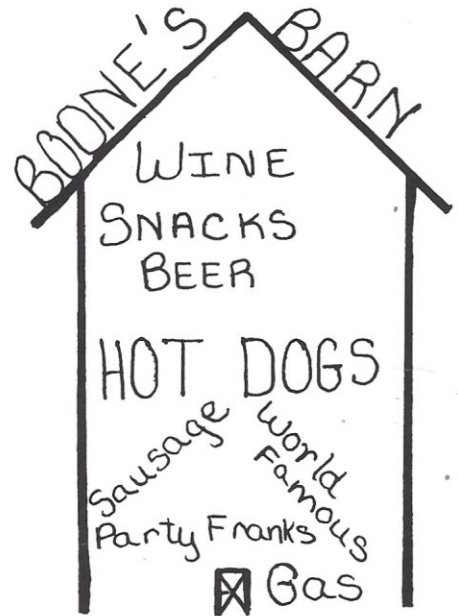 BOONE'S BARN
WINE
SNACKS
BEER
HOT DOGS
Sausage
World
Famous
Party Franks
Gas